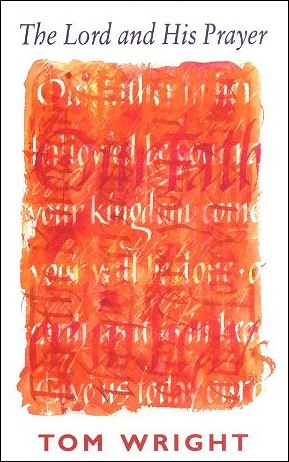 The Lord and His Prayer
Our Father in hea
hallowed be your na
Our Fath
your kingdom come
your will be done · o
earth as it is in hea
Give us today our d
TOM WRIGHT